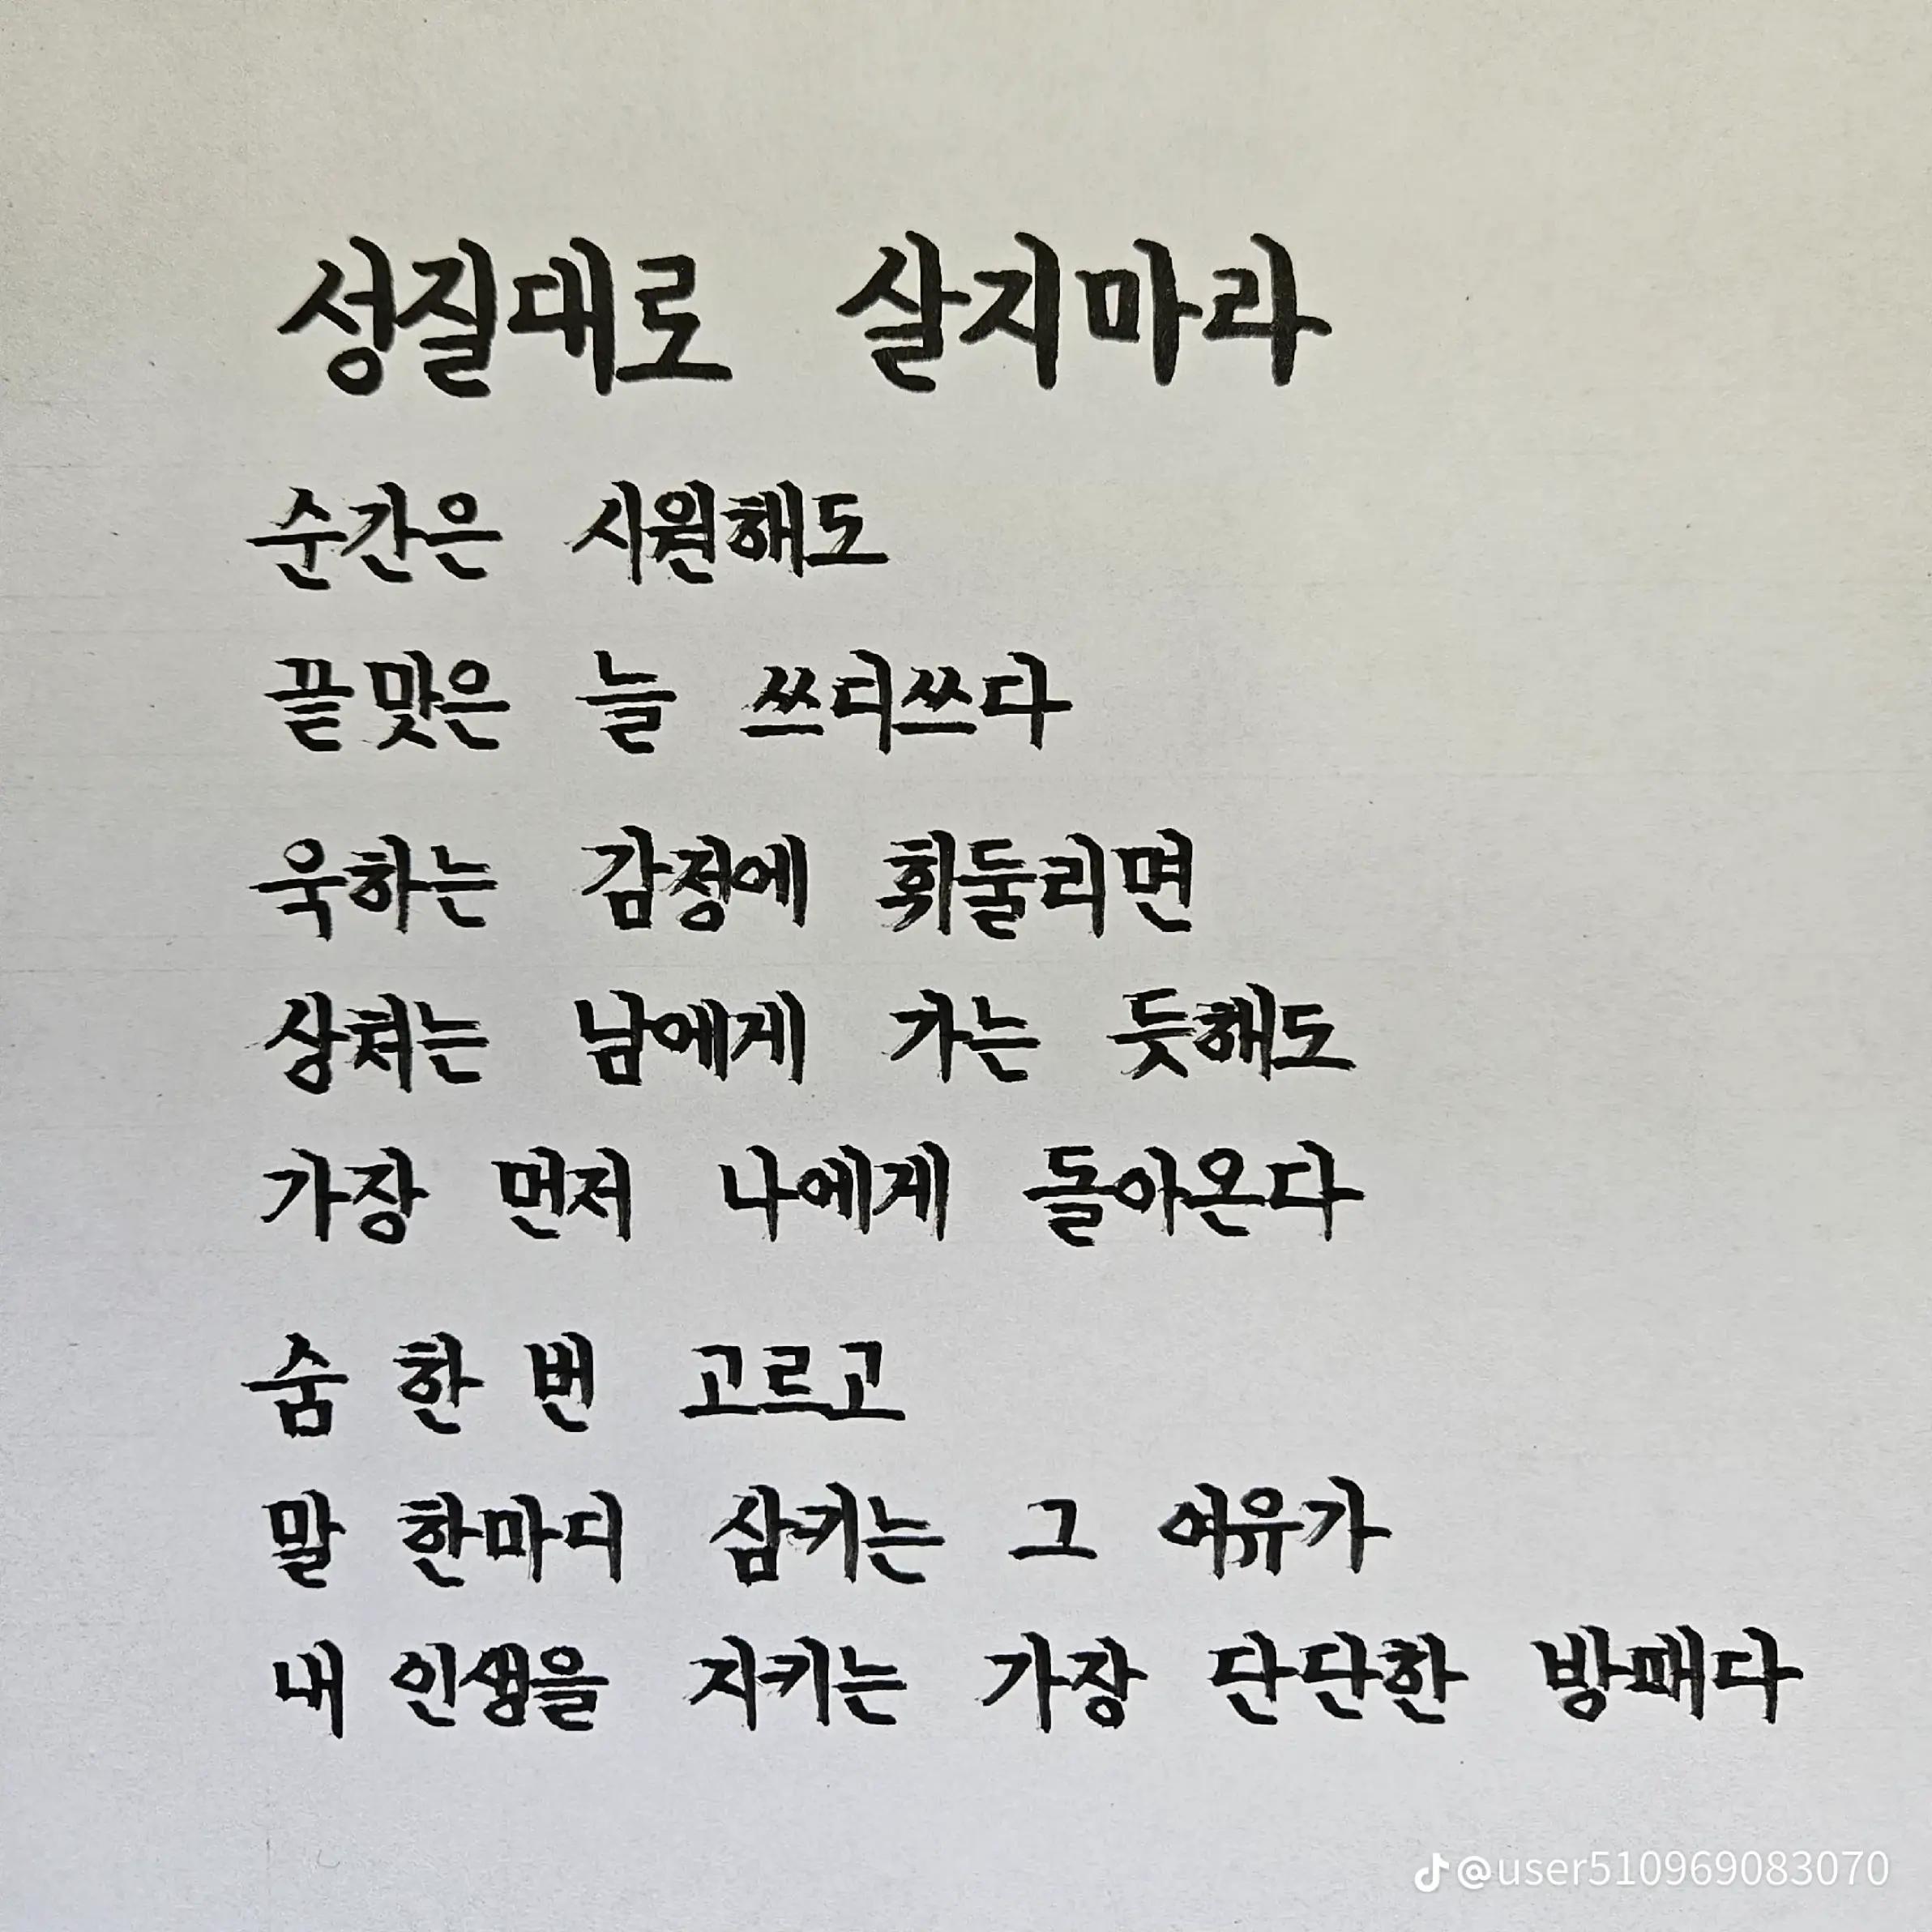 성질대로 살지마라
순간은 시원해도
끝맛은 늘 쓰디쓰다
욱하는 감정에 휘둘리면
상처는 남에게 가는 듯해도
가장 먼저 나에게 돌아온다
숨 한 번 고르고
말 한마디 삼키는 그 여유가
내 인생을 지키는 가장 단단한 방패다
@user510969083070